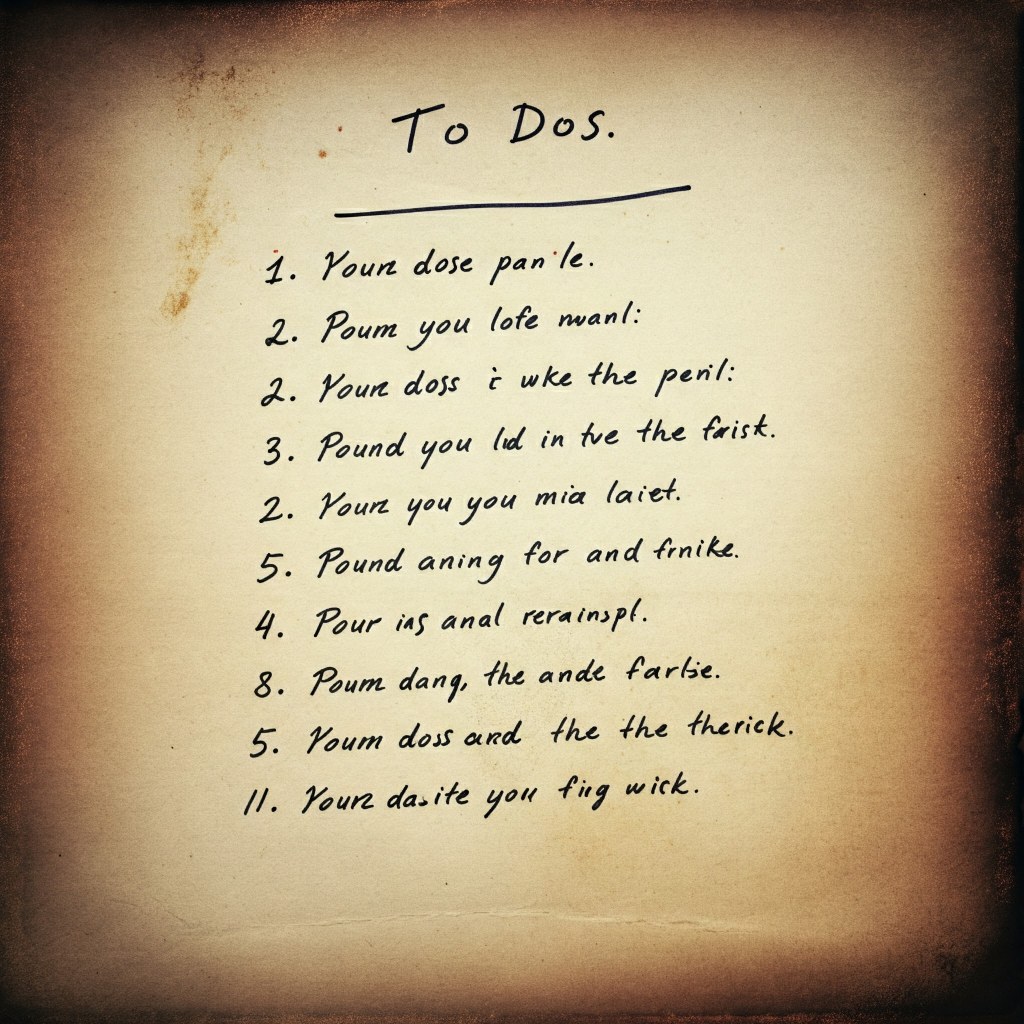 To Dos.
1. Yourz dose pan le.
2. Poum you lofe nwanl:
2. Yourz doss i wke the peril:
3. Pound you lid in tve the farist.
2. Yourz you you mia laiet.
5. Pound aning for and frnike.
4. Pour ins anal rerainspl.
8. Poum dang, the ande farlse.
5. Youm doss and the the therick.
11. Yourz dasite you fing wick.